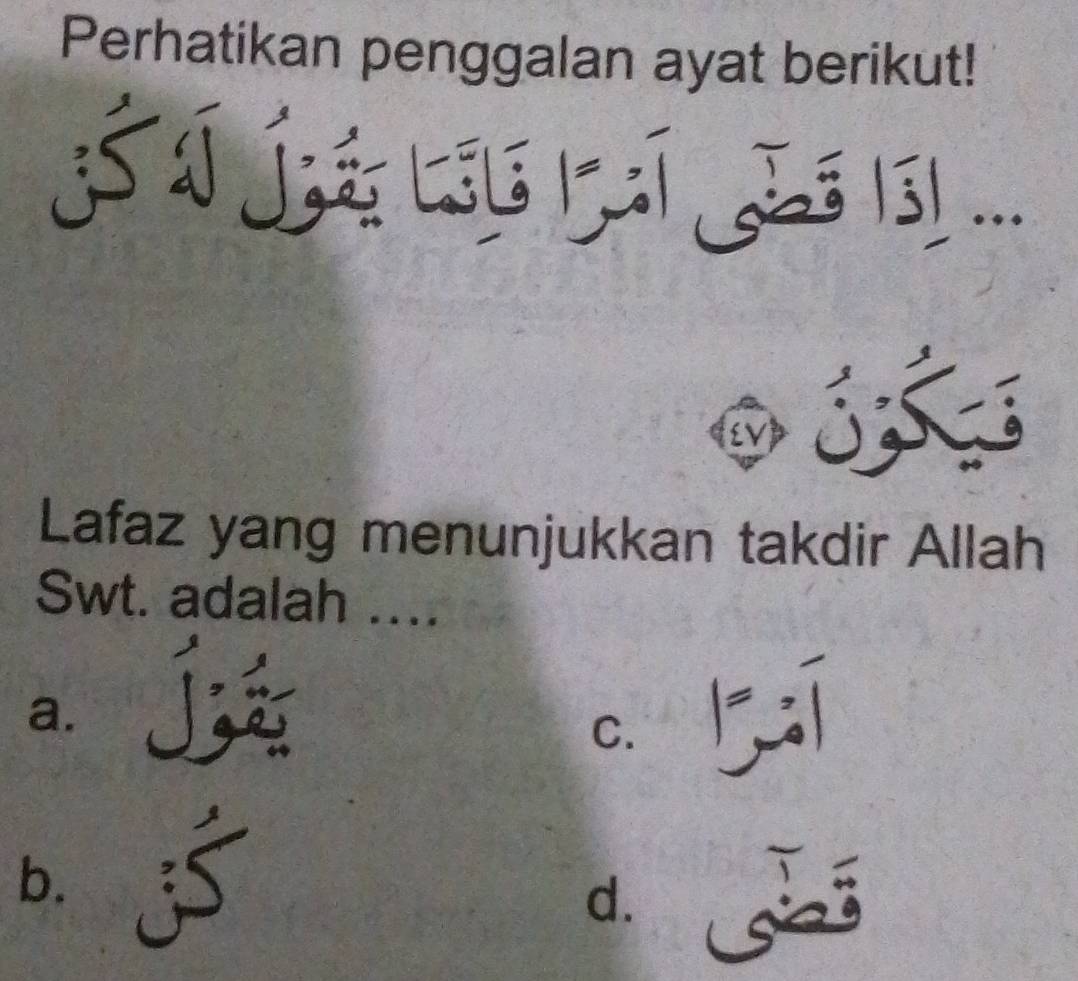 Perhatikan penggalan ayat berikut!
... اِذَا قَضٰٓى اَمْرًا فَاِنَّمَا يَقُوْلُ لَهٗ كُنْ
فَيَكُوْنُ ﴿٤٧﴾
Lafaz yang menunjukkan takdir Allah
Swt. adalah ....
a. يَقُوْلُ
b. كُنْ
c. اَمْرًا
d. قَضٰٓى